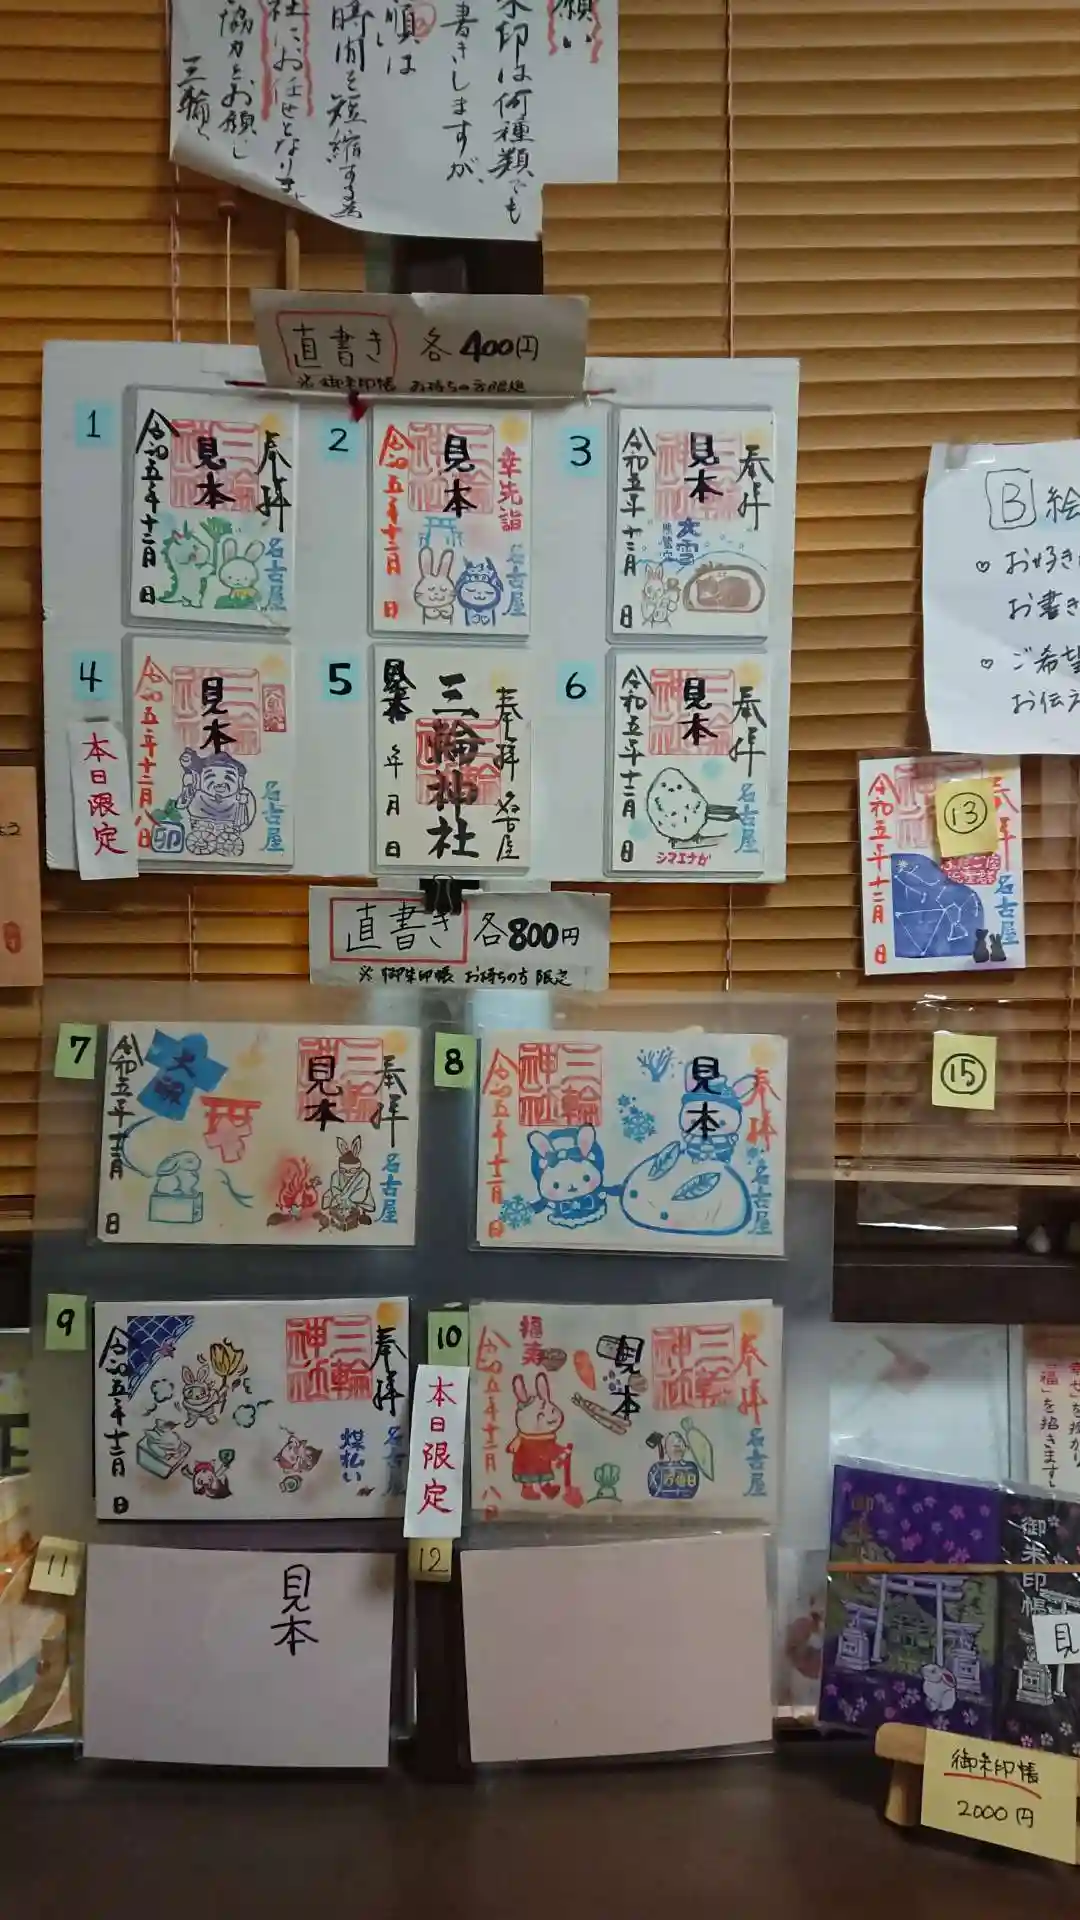 願い
朱印は何種類でも
書きしますが、
順は
時間を短縮する為
社にお任せとなりま
協力をお願いし
三輪
直書き 各400円
※御朱印帳 お持ちの方限定
1
奉拝
三輪神社
見本
名古屋
令和五年十二月 日
2
幸先詣
三輪神社
見本
名古屋
令和五年十二月 日
3
奉拝
三輪神社
見本
大雪
名古屋
令和五年十二月 日
4
本日限定
三輪神社
見本
名古屋
卯
令和五年十二月八日
5
奉拝 名古屋
三輪神社
見本
年 月 日
6
奉拝
三輪神社
見本
名古屋
シマエナガ
令和五年十二月 日
直書き 各800円
※御朱印帳 お持ちの方限定
7
奉拝
三輪神社
見本
名古屋
大祓
令和五年十二月 日
8
奉拝
三輪神社
見本
名古屋
令和五年十二月 日
9
奉拝
三輪神社
名古屋
煤払い
令和五年十二月 日
10
本日限定
奉拝
三輪神社
見本
名古屋
福寿
令和五年十二月八日
11
見本
12
B 絵
♡ お好き
お書き
♡ ご希望
お伝え
13
奉拝
名古屋
令和五年十二月 日
15
福」を招きます
御朱印帳
見
御朱印帳
2000円